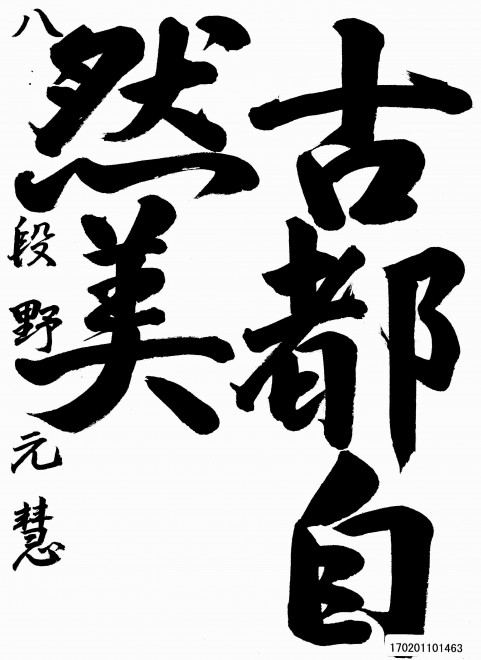 古都自
然美
八段野元慧
170201101463